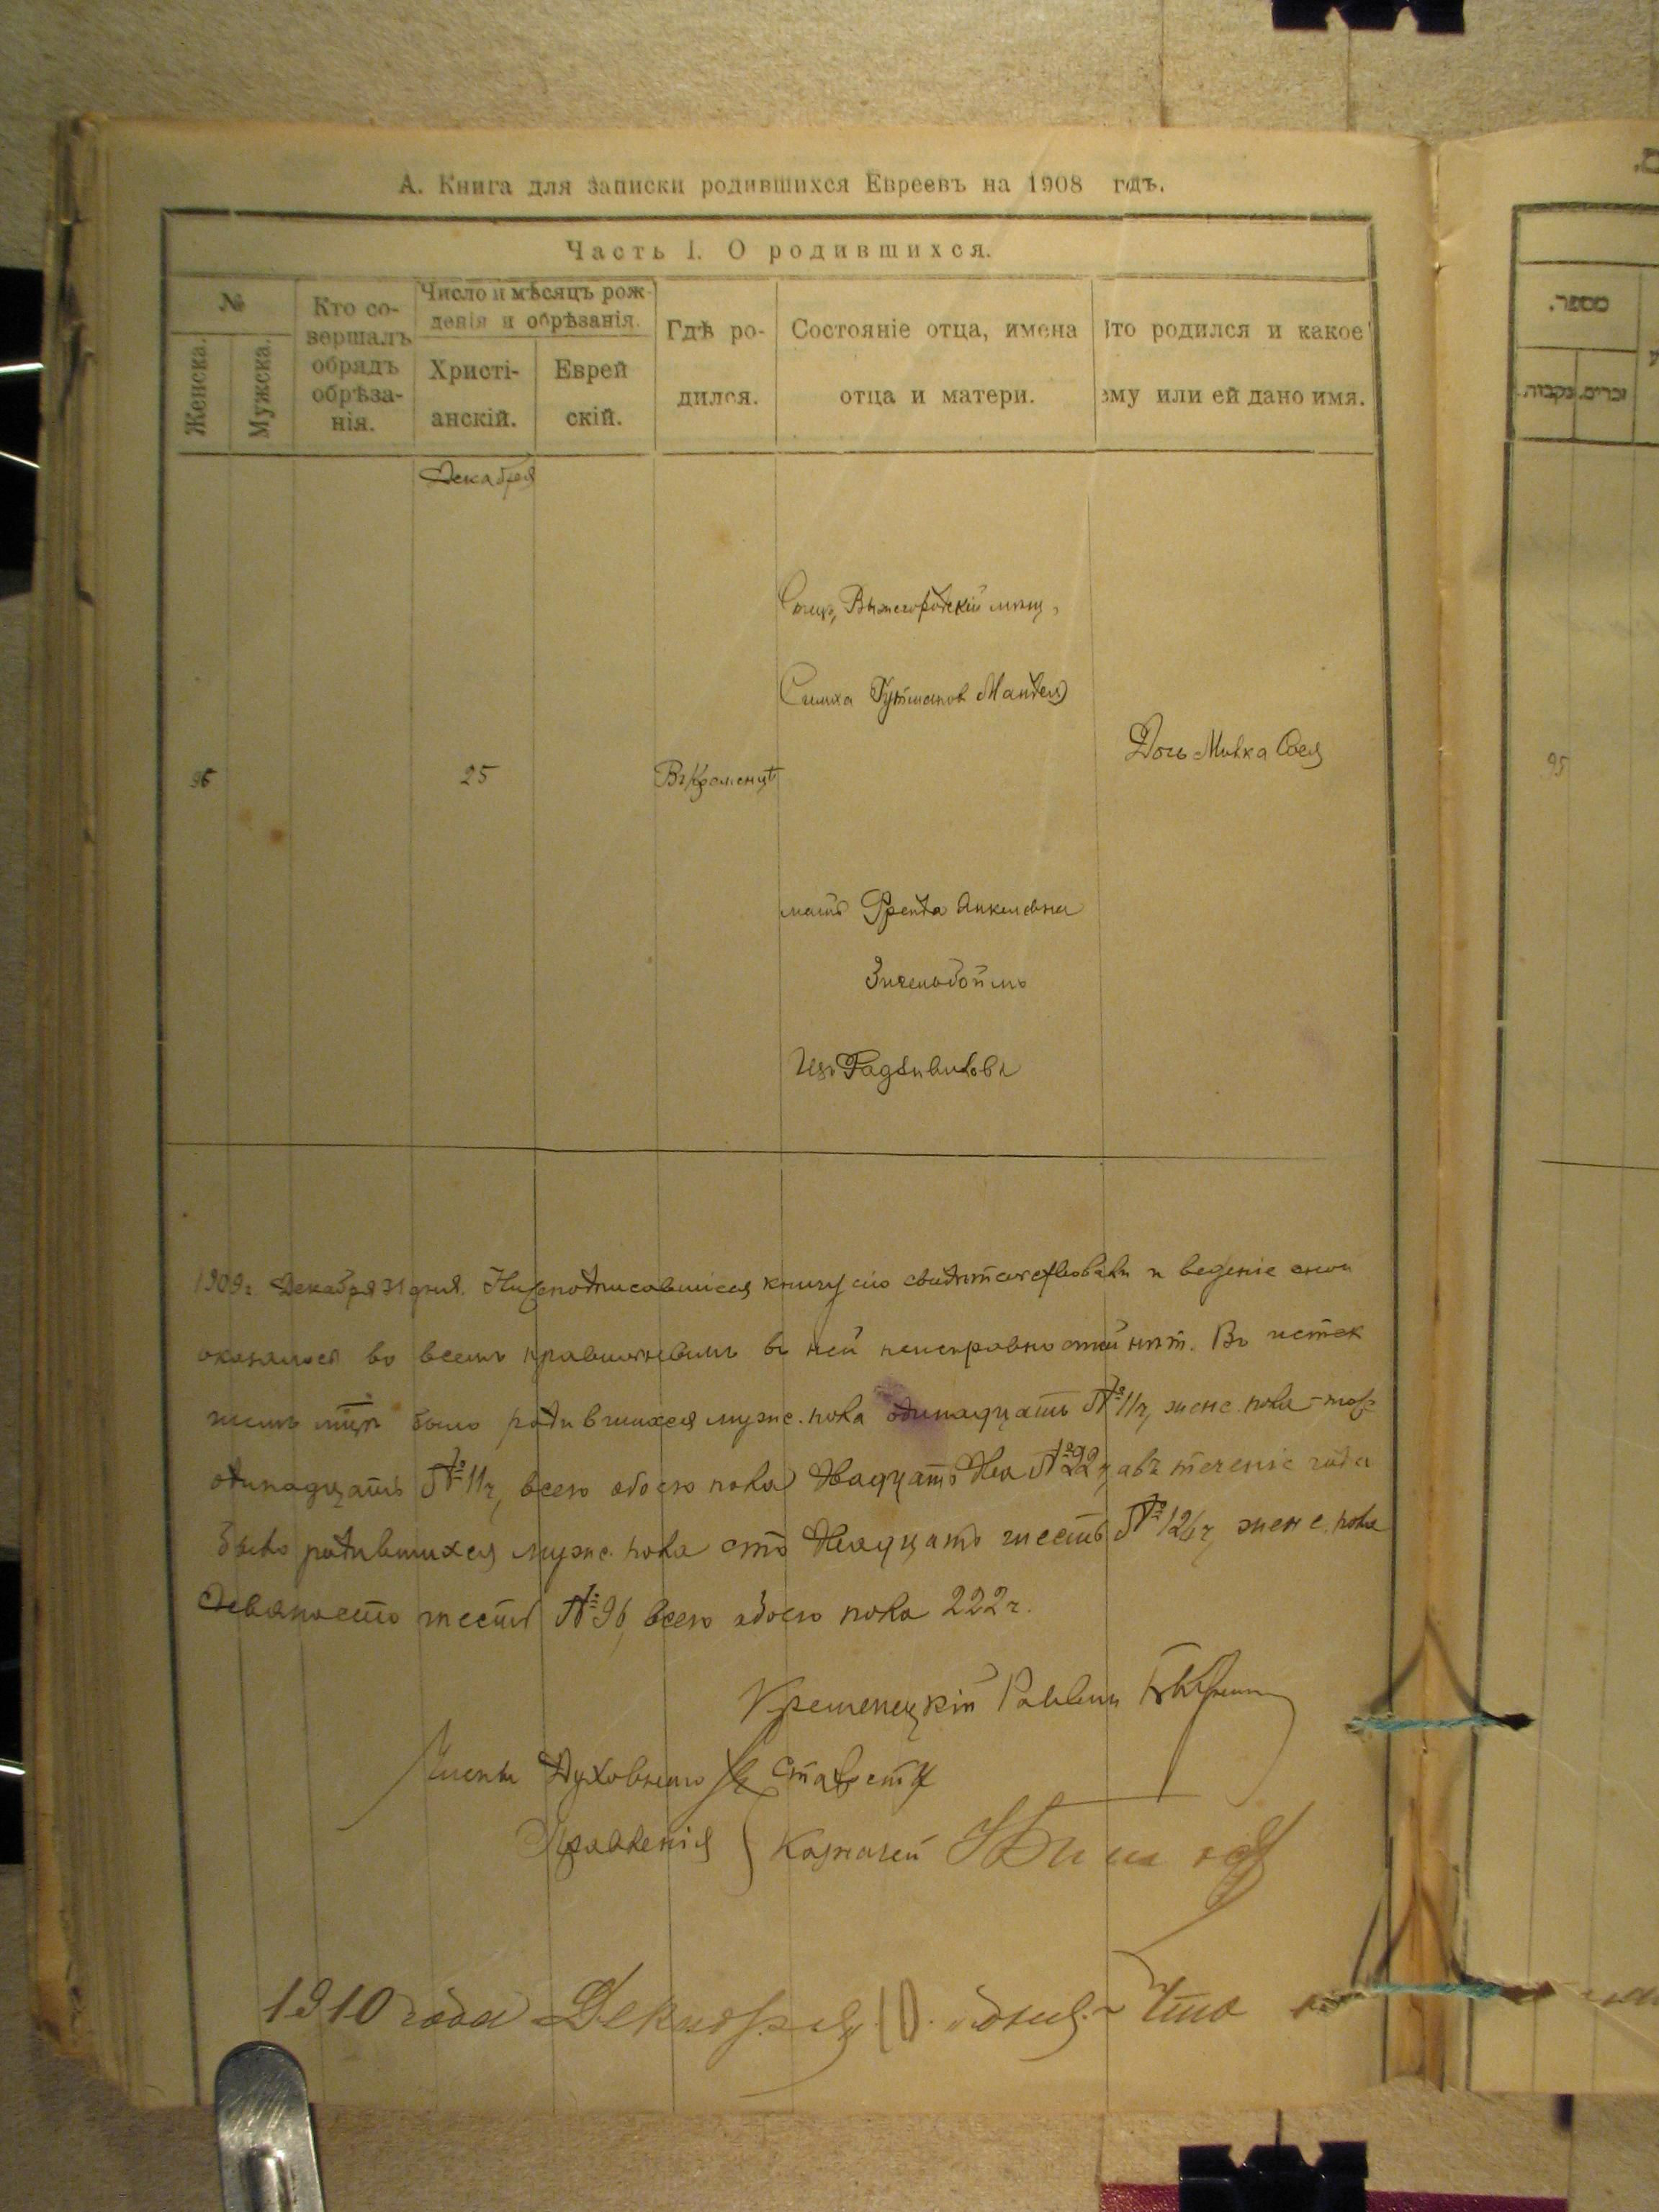 А. Книга для записки родившихся Евреевъ на 1908 годъ.
Часть I. О родившихся.
№
Женска.
Мужска.
Кто со-
вершалъ
обрядъ
обрѣза-
нія.
Число и мѣсяцъ рож-
денія и обрѣзанія.
Христі-
анскій.
Еврей
скій.
Гдѣ ро-
дился.
Состояніе отца, имена
отца и матери.
Кто родился и какое
ему или ей дано имя.
מספר.
נקבות.
זכרים.
Декабря
Отецъ, Вышегородскій мѣщ.
Симха Гутманов Мандел
96
25
Въ Кременцѣ
Дочь Мивка Сося
95
мать Фрейда Анкелевна
Изъ Радзивилова
1909г. Декабря 31 дня. Нижеподписавшіеся книгу сію свидѣтельствовали и веденіе оной
оказалось во всемъ правильнымъ въ ней неисправностей нѣт. Въ истек
шемъ м-цѣ было родившихся мужс. пола одинадцать № 11ч, женс. пола - тож
одинадцать № 11ч, всего обоего пола двадцать два № 22ч, а въ теченіе года
было родившихся мужс. пола сто двадцать шесть № 126ч, женс. пола
девяносто шесть № 96, всего обоего пола 222ч.
Кременецкій Раввинъ
Члены Духовнаго Староста
Правленія Казначей
1910 года Декабря 10 дня. Что